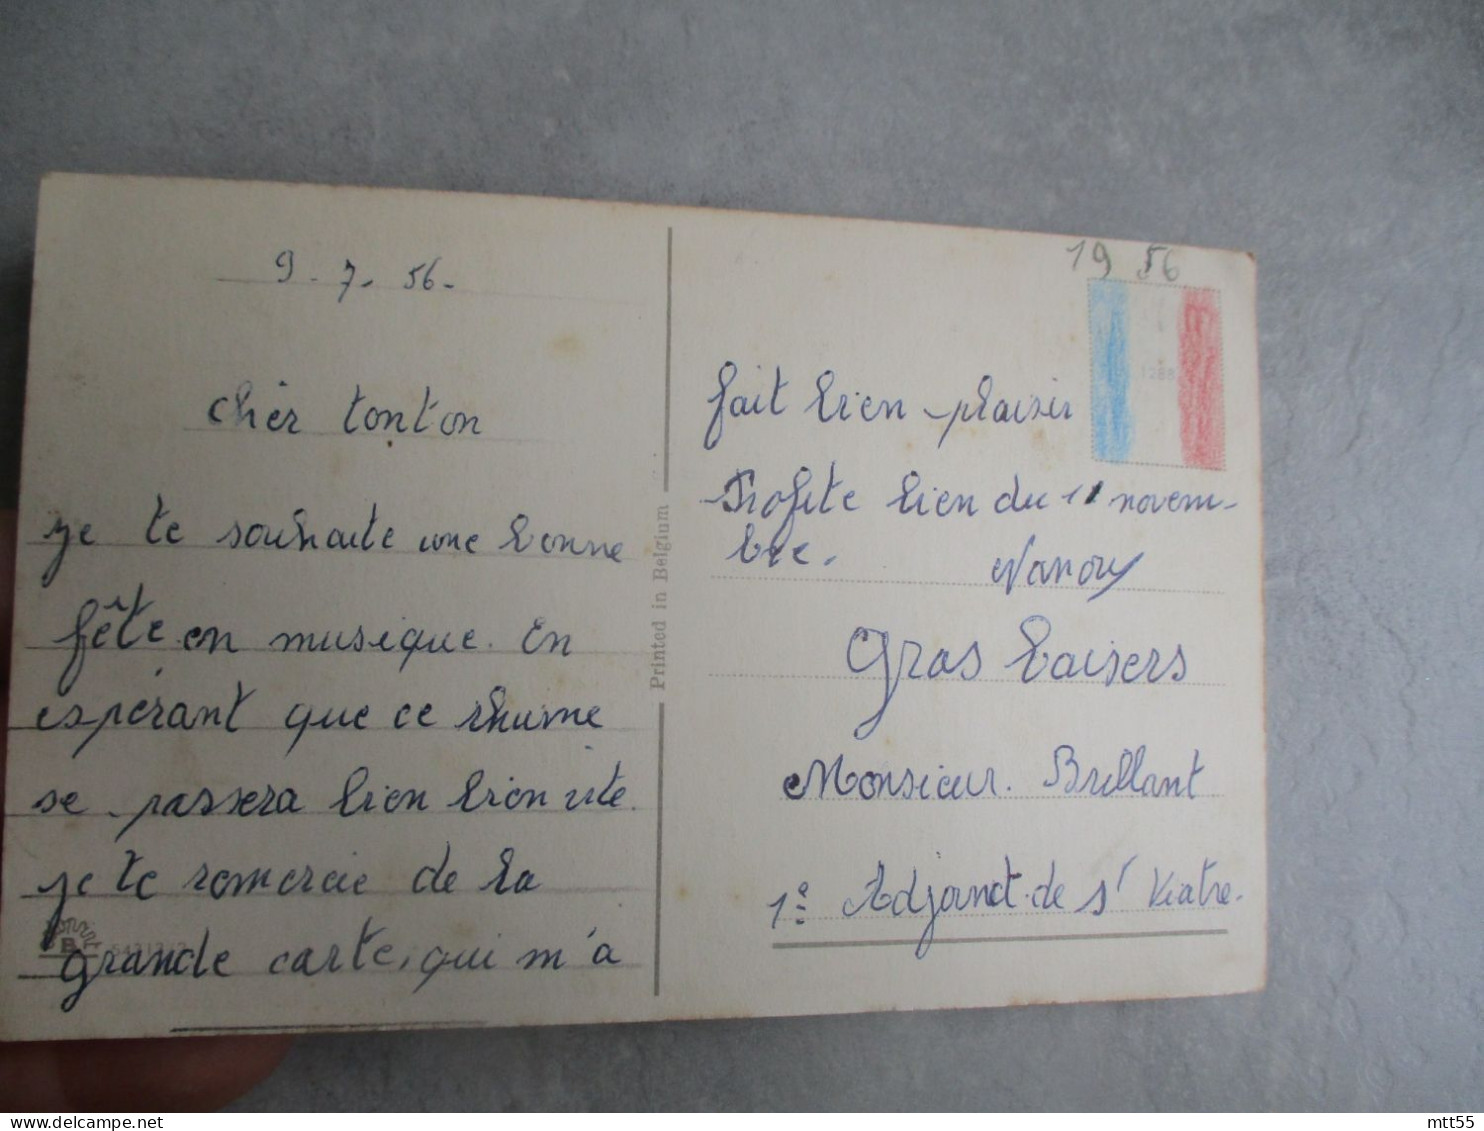 9 - 7 - 56 -
cher tonton
je te souhaite une bonne
fête en musique. En
espérant que ce rhume
se passera bien bien vite.
je te remercie de la
grande carte, qui m'a
Printed in Belgium
B
19 56
1288
fait bien plaisir
Profite bien du 11 novem-
bre.
Gros baisers
Monsieur. Brillant
1e Adjoinct. de St Viatre.
mtt55